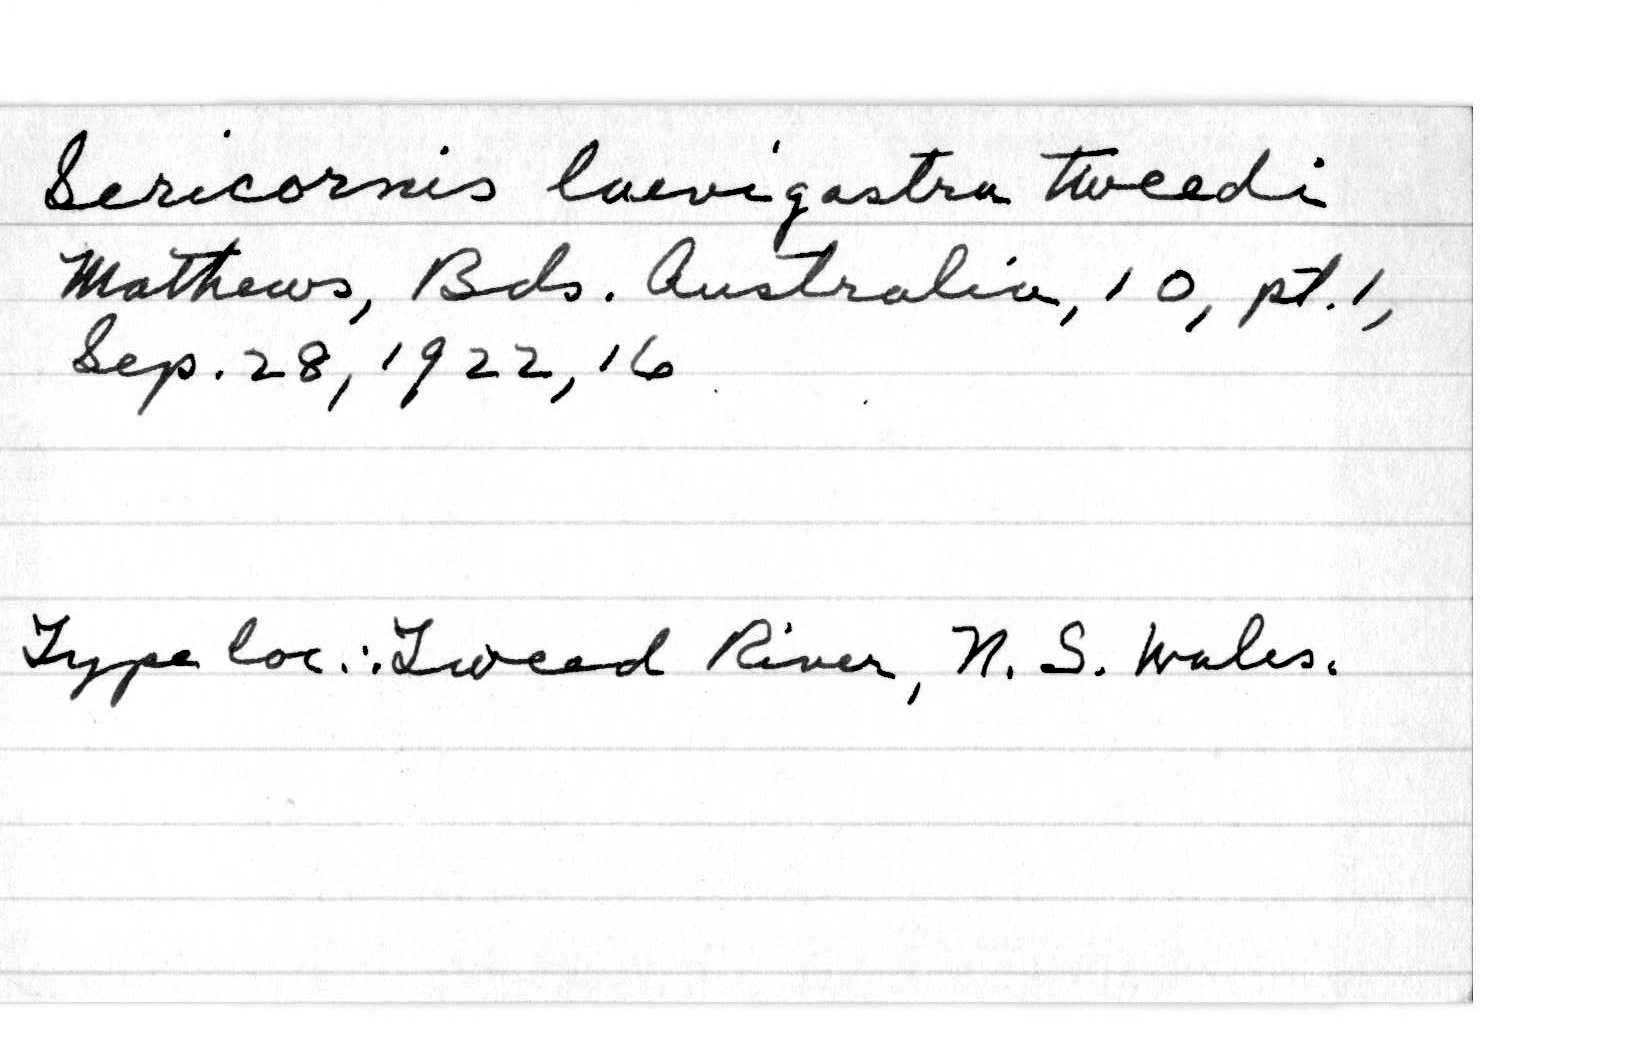 Sericornis laevigastra tweedi
Mathews, Bds. Australia, 10, pt. 1,
Sep. 28, 1922, 16
Type loc.: Tweed River, N. S. Wales.